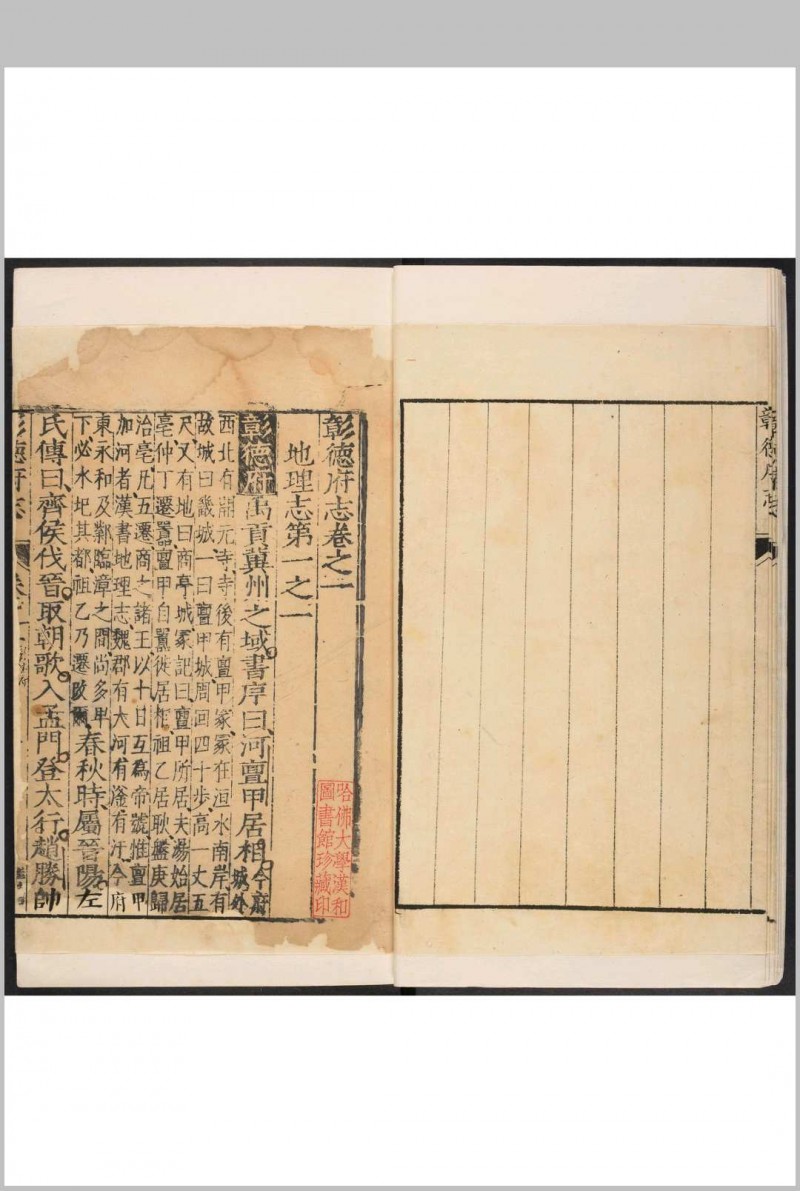 彰德府志
彰德府志卷之一
地理志第一之一
彰德府禹貢冀州之域書序曰河亶甲居相今府
城外
西北有開元寺寺後有亶甲冢冢在洹水南岸有
故城曰畿城一曰亶甲城周回四十步高一丈五
尺又有地曰商亭城冢記曰亶甲所居夫湯始居
亳仲丁遷囂亶甲自囂徙居相祖乙居耿盤庚歸
治亳凡五遷商之諸王以十日互為帝號惟亶甲
加河者漢書地理志魏郡有大河有滏有汙今府
東永和及鄴臨漳之間尚多甲
下必水圯其都祖乙乃遷
春秋時屬晉陽左
氏傳曰齊侯伐晉取朝歌入孟門登太行趙勝帥
彰德府志
卷
哈佛大學漢和
圖書館珍藏印